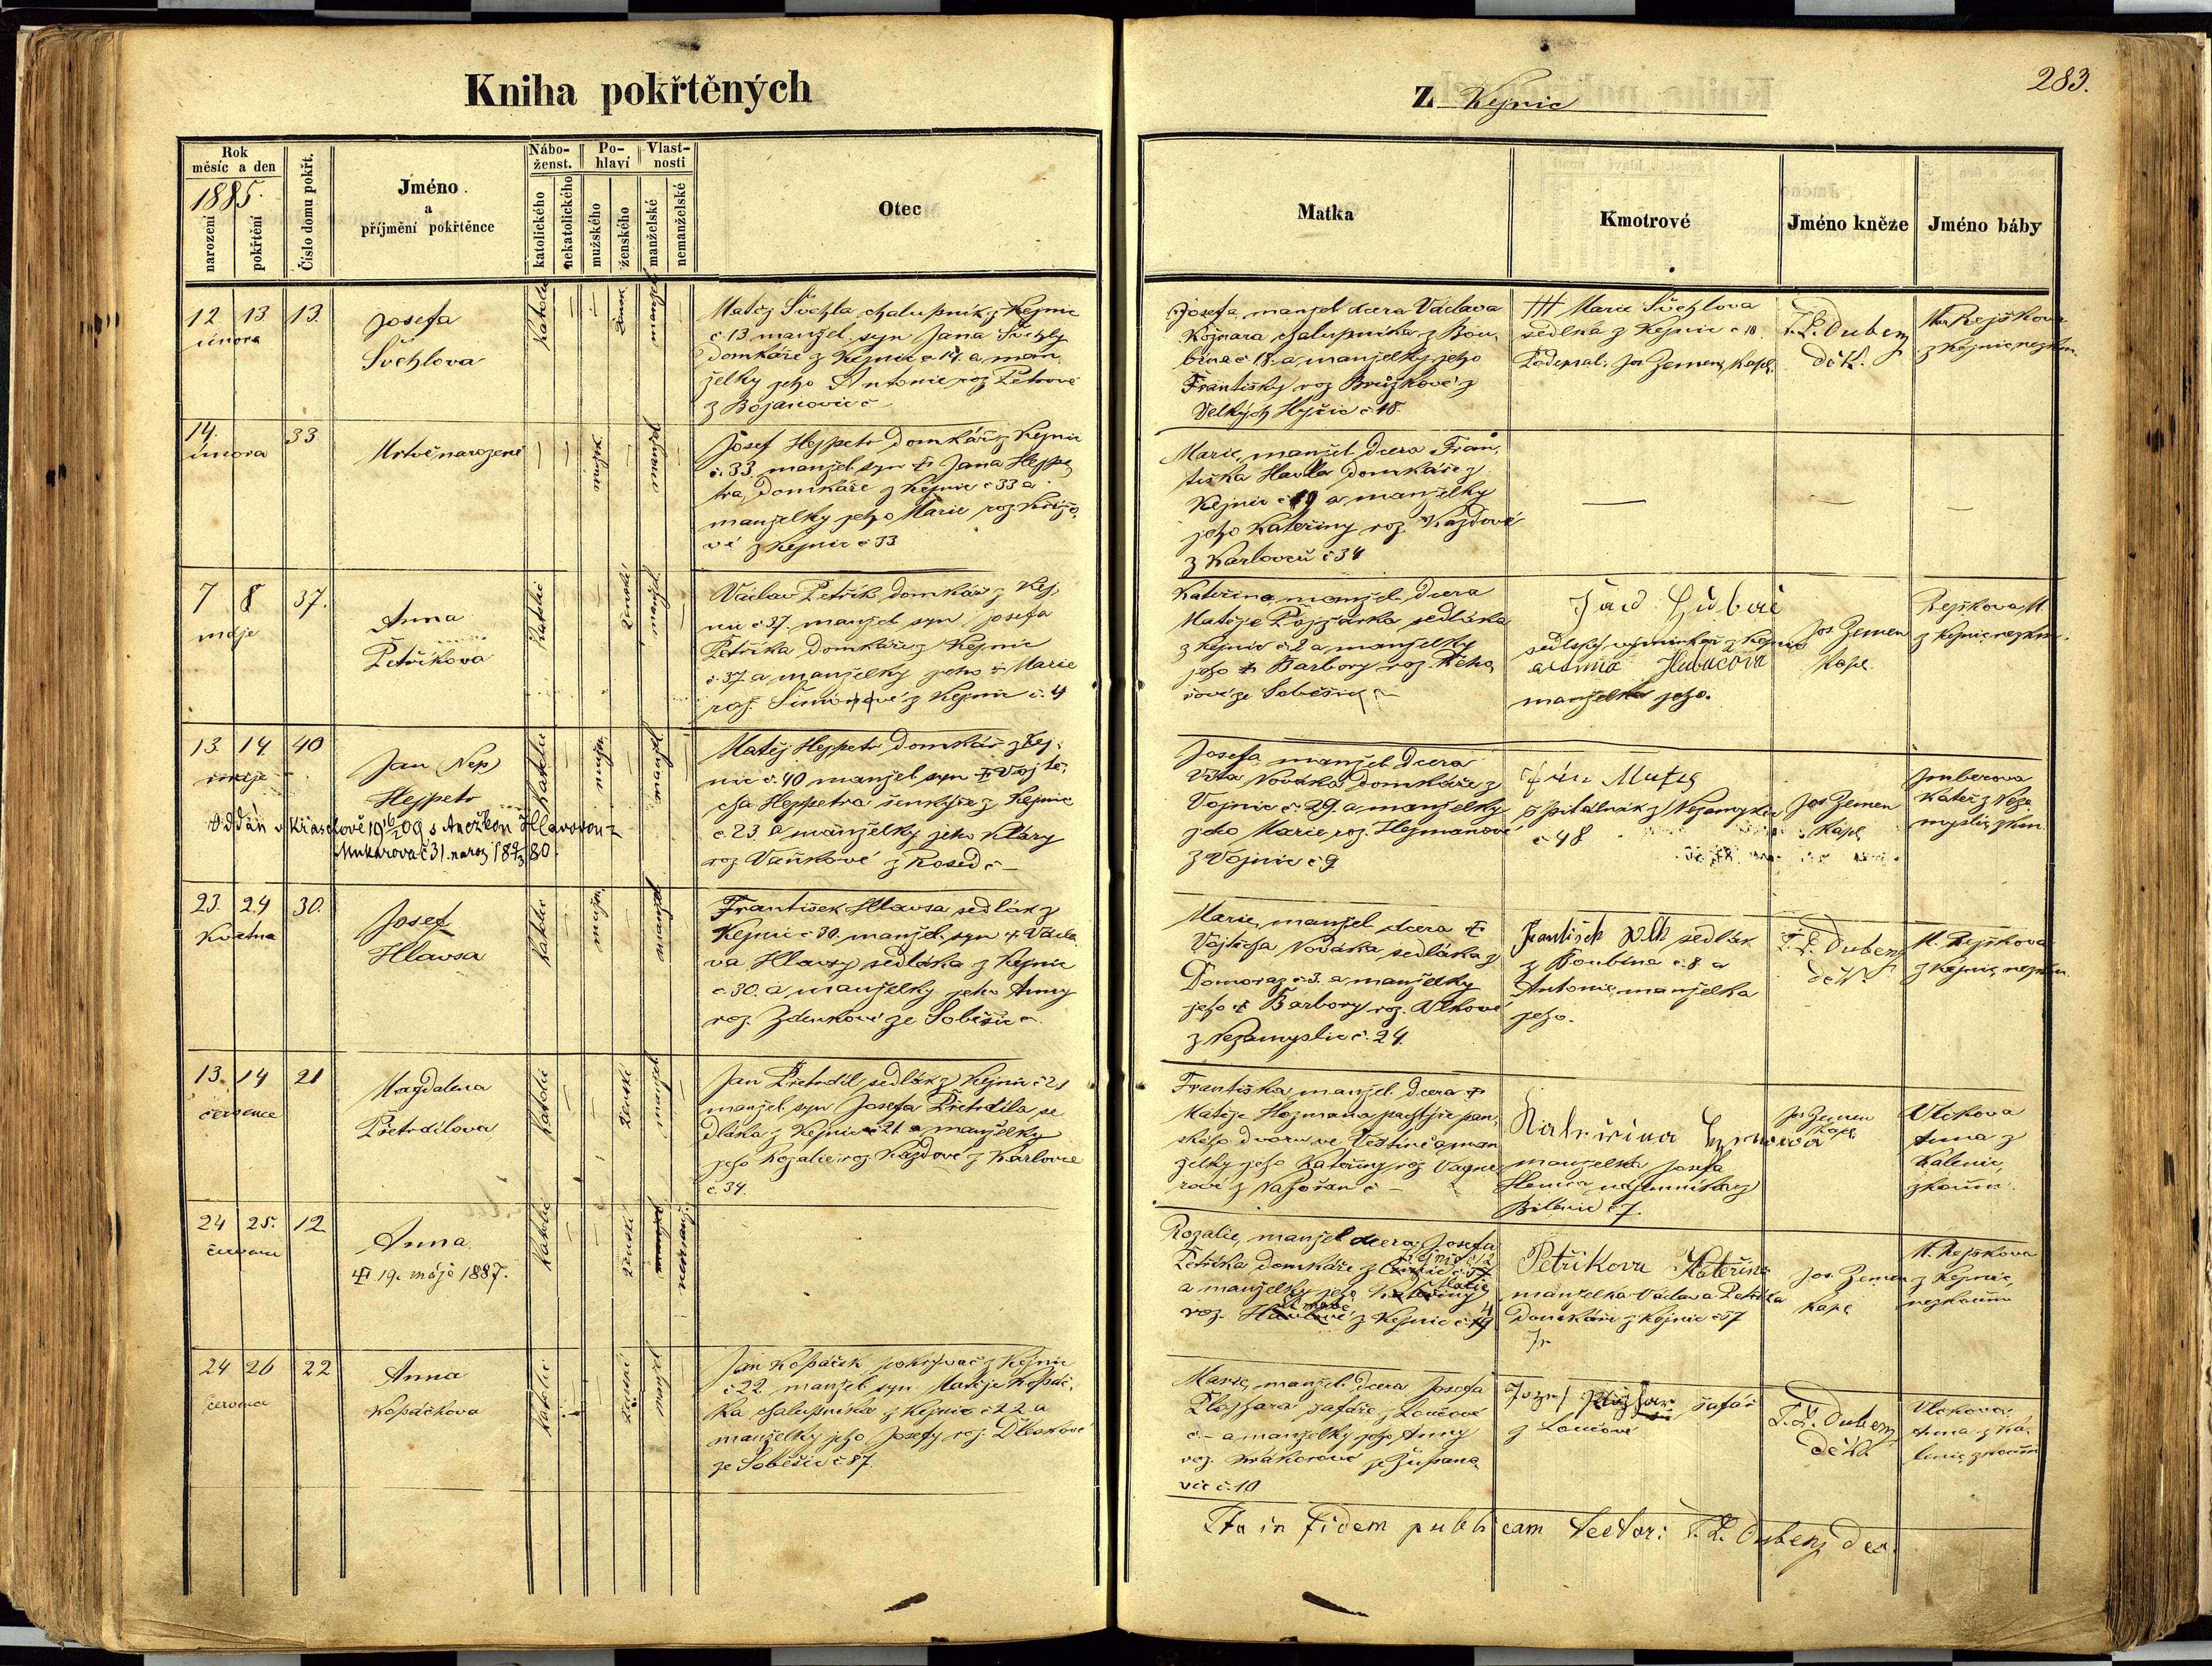 Kniha pokřtěných
Z Kejnic
283.
Rok
měsíc a den
1885.
narození
pokřtění
Číslo domu pokřt.
Jméno
a
příjmění pokřtěnce
Nábo-
ženst.
katolického
nekatolického
Po-
hlaví
mužského
ženského
Vlast-
nosti
manželské
nemanželské
Otec
Matka
Kmotrové
Jméno kněze
Jméno báby
12 13 13.
února
Josefa
Švehlova
Matěj Švehla chalupník z Kejnic
č 13 manžel. syn Jana Švehly
Domkáře z Kejnic č 14. a man
želky jeho Antonie roz Petrové
z Bojanovic č
Josefa, manžel dcera Václava
Kožnara chalupníka z Bou
bína č 18. a manželky jeho
Františky roz Bružkové z
Velkých Hyčic č 18.
††† Marie Švehlova
sedlka z Kejnic č 10
Podepsal: Jos Zemen, Kapl.
F. L. Dubenz
děk.
Rejškova
z Kejnic nezkou.
14. 33
února
Mrtvě narozené
mužsk
manžel
Josef Hejpetr Domkář z Kejnic
č. 33 manžel syn † Jana Hejpe
tra, Domkáře z Kejnic č 33 a
manželky jeho Marie roz Křížo
vé z Kejnic č 33
Marie, manžel Dcera Fran
tiška Havla Domkáře z
Kejnic č 19 a manželky
jeho Kateřiny roz. Kazdové
z Karlovců č 34
7 8 37.
máje
Anna
Petříkova
Katolic
ženské
manžel
Václav Petřík, Domkář z Kej
nic č 37. manžel syn Josefa
Petříka Domkáře z Kejnic
č. 37. a manželky jeho † Marie
roz. Šimonové z Kejnic č. 4
Kateřina, manžel. Dcera
Matěje Pojžárka sedláka
z Kejnic č 2 a manželky
jeho † Barbory roz.
rové ze Soběšic č
sedlský výminkář z Kejnic
a Anna Hubačova
manželka jeho.
Jos. Zemen
Kapl
Rejškova M.
z Kejnic nezkou.
13. 14. 40
máje
Jan (Nep)
Hejpetr
Oddán v Křaselově 19 16/2 09 s Anežkou Hlavovou z
Mukařova č 31. naroz 18 9/3 80.
Matěj Hejpetr Domkář z Kej
nic č. 40 manžel syn † Vojtě
cha Hejpetra šenkýře z Kejnic
č. 23. a manželky jeho Kláry
roz Vaňkové z Rosed č –
Josefa, manžel Dcera
Víta Nováka Domkáře z
Vojnic č. 29. a manželky
jeho Marie, roz. Hejmanové
z Vojnic č 9
špitálník z Nezamyslic
č 48
Jos Zemen
Kapl
Kateř z Neza
myslic, zkou.
23. 24 30.
Května
Josef
Hlavsa
František Hlavsa sedlák z
Kejnic č 30. manžel. syn † Václa
va Hlavsy sedláka z Kejnic
č. 30. a manželky jeho Anny
roz. Zdeňkové ze Soběšic č.
Marie, manžel dcera †
Vojtěcha Nováka sedláka z
Domoraz č 3. a manželky
jeho † Barbory roz. Vlkové
z Nezamyslic č. 24.
František Vlk sedlák
z Boubína č. 8 a
Antonie, manželka
jeho.
F. L. Dubenz
děk.
M. Rejškova
z Kejnic nezkou
13. 14 21
července
Magdalena
Přetrdílova
Jan Přetrdíl sedlák z Kejnic č 21
manžel. syn Josefa Přetrdíla se
dláka z Kejnic č 21 a manželky
jeho Rozalie roz Kazdové z Karlovce
č. 34.
Františka manžel. Dcera †
Matěje Hozmana pachtýře pan
ského dvoru ve Těštíně a man
želky jeho Kateřiny roz Vagne
rové z Nahořan č –
Kateřina
manželka Josefa
z
č 7.
Jos Zemen
Kapl
Vlčkova
Anna z
Kalenic,
zkouš.
24 25. 12
června
Anna
† 19. máje 1887.
Rozalie, manžel dcera Josefa
Petříka Domkáře z Kejnic č 12
a manželky jeho Marie
roz. Šimonové z Kejnic č 4
Petříkova Kateřina
manželka Václava Petříka
Domkáře z Kejnic č 37
Jos. Zemen
Kapl
M. Rejškova
z Kejnic,
nezkouš
24 26 22
června
Anna
Kopáčkova
Jan Kopáček, pokrývač z Kejnic
č 22. manžel. syn Matěje Kopáč
ka chalupníka z Kejnic č 22 a
manželky jeho Josefy roz. Dleskové
ze Soběšic č 87.
Marie, manžel. Dcera Josefa
šafáře z Loučové
č. – a manželky jeho Anny
roz. ze Župano
vic č. 10
šafář
z Loučové
F. L. Dubenz
děk.
Vlčkova
Anna z Ka
lenic, zkouš
Ita in fidem publicam testor: F. L. Dubenz Dec.